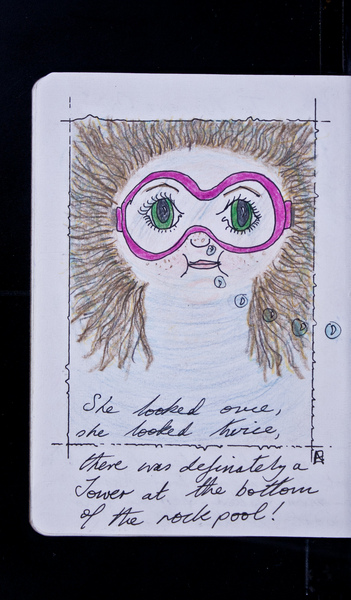 She looked once,
she looked twice,
there was definately a
Tower at the bottom
of the rock pool!